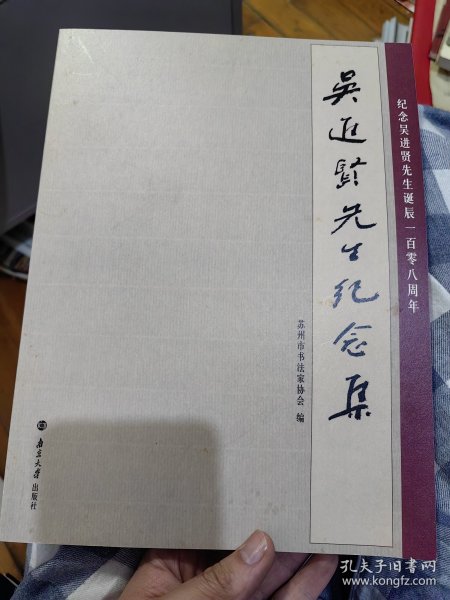 纪念吴进贤先生诞辰一百零八周年
吴进贤先生纪念集
苏州市书法家协会 编
南京大学出版社
孔夫子旧书网
www.kongfz.com